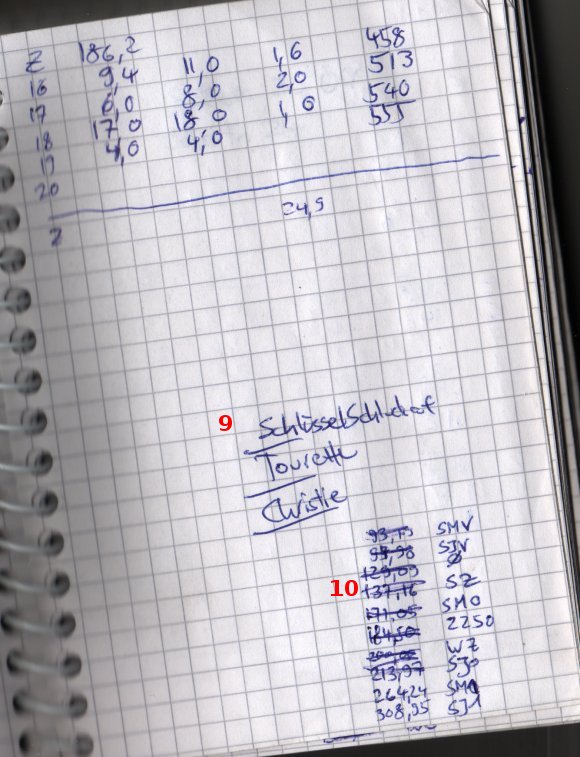 Z 186,2 458
16 9,4 11,0 1,6 513
17 6,0 8,0 2,0 540
18 17,0 18,0 1,6 555
19 4,0 4,0
20
24,9
Z
9
Tourette
Christie
93,79 SMV
SJV
129,09 Ø
10 137,16 SZ
171,05 SMO
184,50 2250
WZ
213,97 SJo
264,24 SM
308,95 SJ1